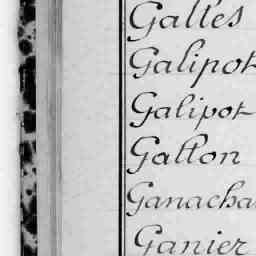 Galles
Galipot
Galipot
Gallon
Ganacha
Ganier